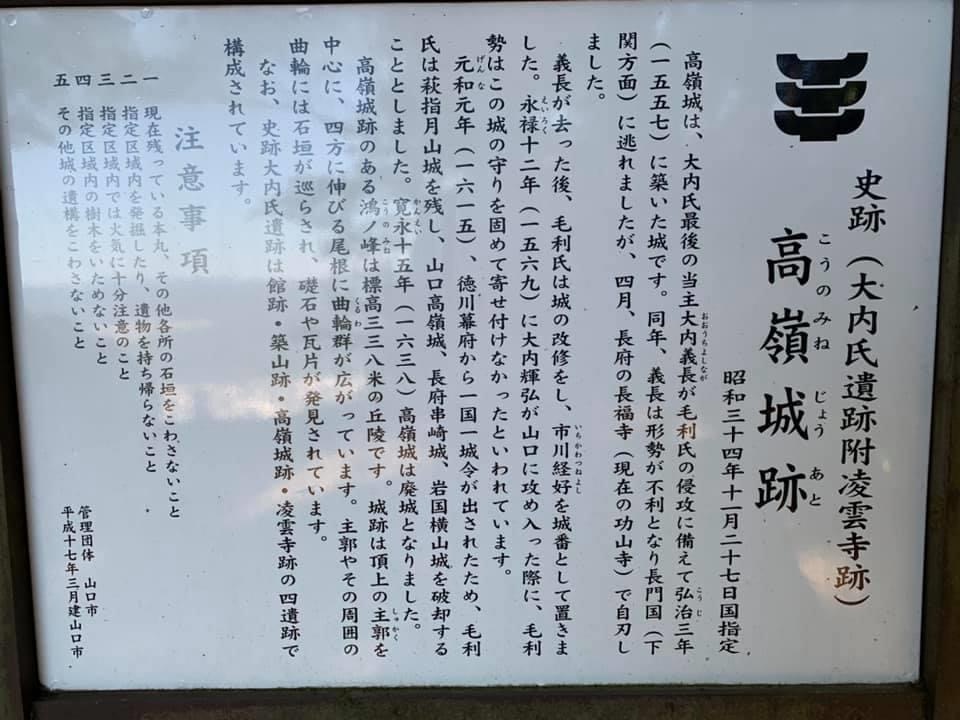 史跡(大内氏遺跡附凌雲寺跡)
高嶺城跡
こうのみねじょうあと
昭和三十四年十一月二十七日国指定
高嶺城は、大内氏最後の当主大内義長が毛利氏の侵攻に備えて弘治三年
おおうちよしなが
こうじ
(一五五七)に築いた城です。同年、義長は形勢が不利となり長門国(下
関方面)に逃れましたが、四月、長府の長福寺(現在の功山寺)で自刃し
ました。
義長が去った後、毛利氏は城の改修をし、市川経好を城番として置きま
いちかわつねよし
した。永禄十二年(一五六九)に大内輝弘が山口に攻め入った際に、毛利
えいろく
勢はこの城の守りを固めて寄せ付けなかったといわれています。
元和元年(一六一五)、徳川幕府から一国一城令が出されたため、毛利
げんな
氏は萩指月山城を残し、山口高嶺城、長府串崎城、岩国横山城を破却する
こととしました。寛永十五年(一六三八)高嶺城は廃城となりました。
かんえい
高嶺城跡のある鴻ノ峰は標高三三八米の丘陵です。城跡は頂上の主郭を
こうのみね
しゅかく
中心に、四方に伸びる尾根に曲輪群が広がっています。主郭やその周囲の
くるわ
曲輪には石垣が巡らされ、礎石や瓦片が発見されています。
なお、史跡大内氏遺跡は館跡・築山跡・高嶺城跡・凌雲寺跡の四遺跡で
構成されています。
注意事項
一 現在残っている本丸、その他各所の石垣をこわさないこと
二 指定区域内を発掘したり、遺物を持ち帰らないこと
三 指定区域内では火気に十分注意のこと
四 指定区域内の樹木をいためないこと
五 その他城の遺構をこわさないこと
管理団体 山口市
平成十七年三月建山口市